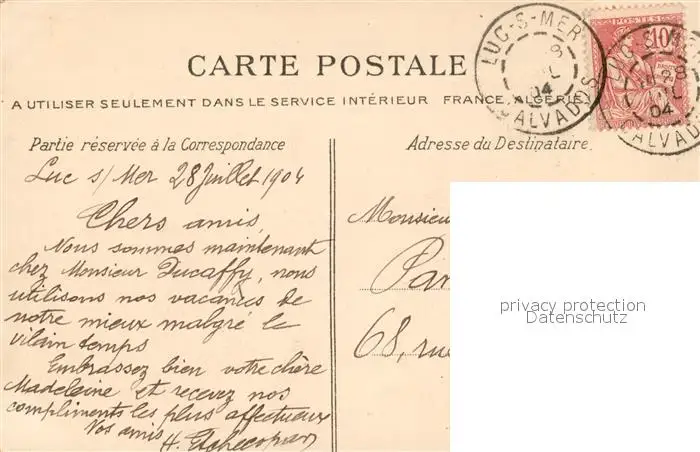 CARTE POSTALE
A UTILISER SEULEMENT DANS LE SERVICE INTÉRIEUR FRANCE, ALGÉRIE
LUC-S-MER
CALVADOS
04
POSTES
10
28
04
CALVADOS
Partie réservée à la Correspondance
Luc s/ Mer 28 Juillet 1904
Chers amis,
Nous sommes maintenant
chez Monsieur Ducaffy, nous
utilisons nos vacances de
notre mieux malgré le
vilain temps
Embrassez bien votre chère
Madeleine et recevez nos
compliments les plus affectueux
Vos amis
H. Etchecopar
Adresse du Destinataire.
Monsieu
Par
68, rue
privacy protection
Datenschutz